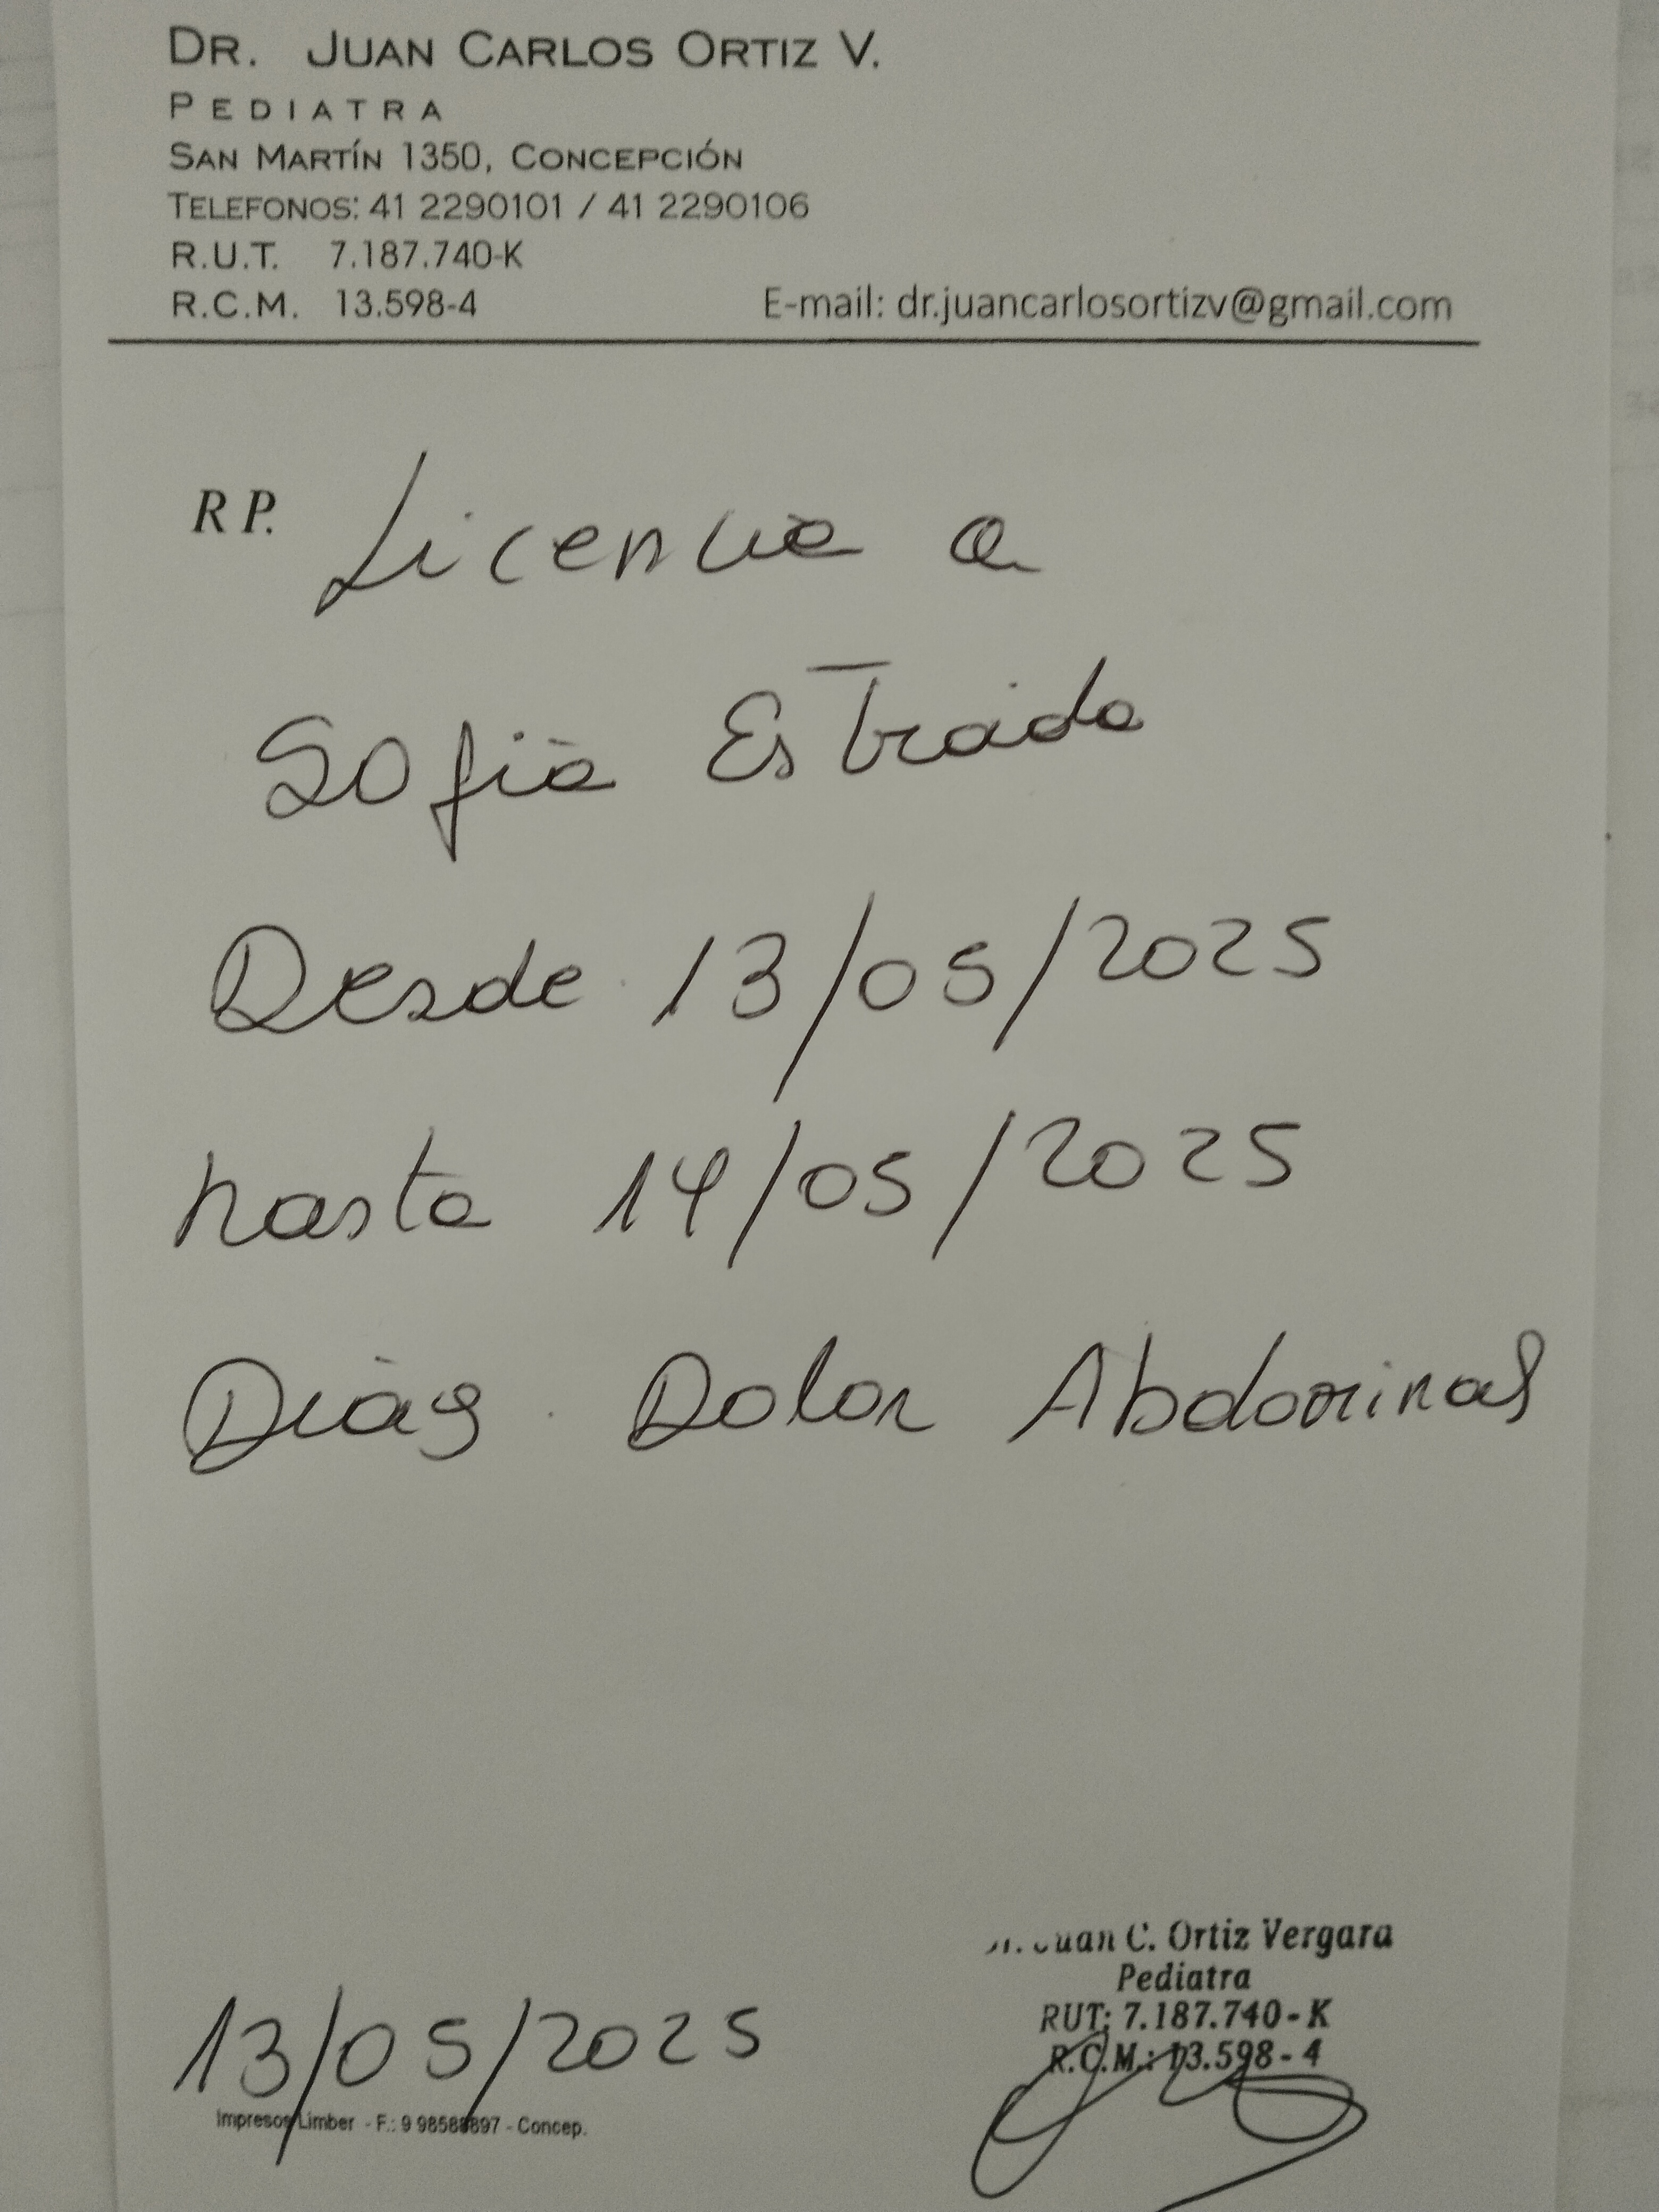 DR. JUAN CARLOS ORTIZ V.
PEDIATRA
SAN MARTÍN 1350, CONCEPCIÓN
TELEFONOS: 41 2290101 / 41 2290106
R.U.T. 7.187.740-K
R.C.M. 13.598-4 E-mail: dr.juancarlosortizv@gmail.com
RP. Licencia a
Sofia Estrada
Desde 13/05/2025
hasta 14/05/2025
Diag. Dolor Abdominal
Juan C. Ortiz Vergara
Pediatra
RUT: 7.187.740-K
R.C.M.: 13.598-4
13/05/2025
Impresos Limber - F.: 9 98588897 - Concep.